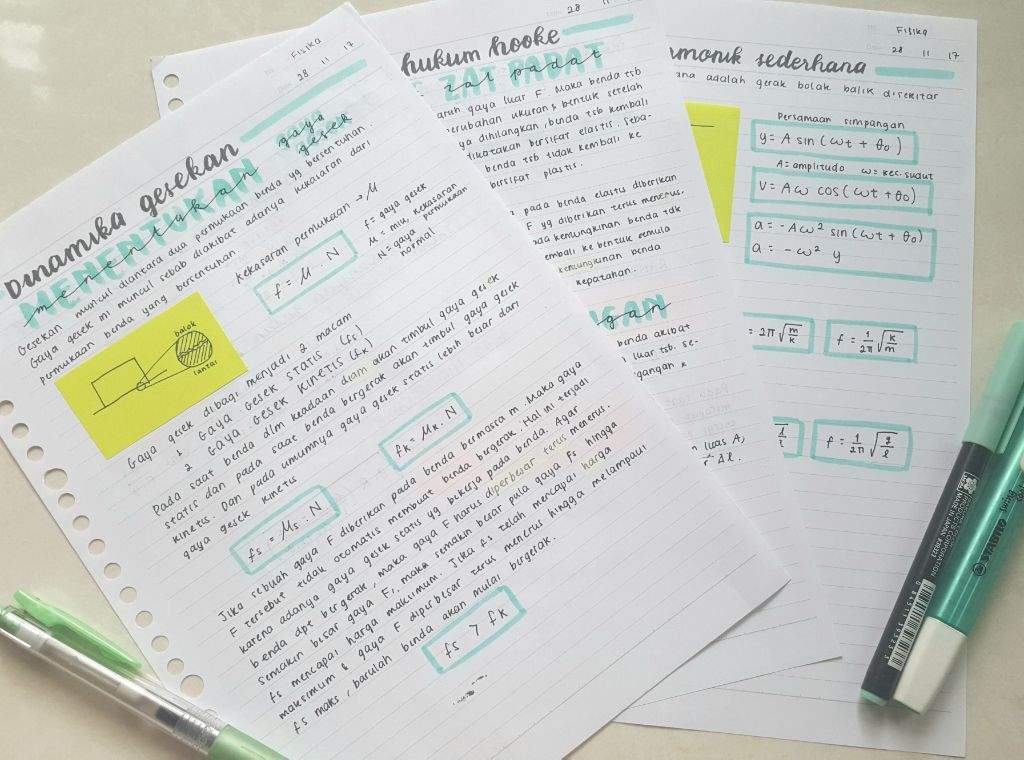 Fisika
28 11 17
Dinamika gesekan
MENENTUKAN
menentukan gaya gesek
Gesekan muncul diantara dua permukaan benda yg bersentuhan.
Gaya gesek ini muncul sebab diakibat adanya kekasaran dari
permukaan benda yang bersentuhan.
balok
lantai
kekasaran permukaan → μ
f = μ . N
f = gaya gesek
μ = miu, kekasaran permukaan
N = gaya normal
Gaya gesek dibagi menjadi 2 macam
1 GAYA GESEK STATIS (fs)
2 GAYA GESEK KINETIS (fk)
Pada saat benda dlm keadaan diam akan timbul gaya gesek
statis dan pada saat benda bergerak akan timbul gaya gesek
kinetis. Dan pada umumnya gaya gesek statis lebih besar dari
gaya gesek kinetis
fs = μs . N
fk = μk . N
Jika sebuah gaya F diberikan pada benda bermassa m. Maka gaya
F tersebut tidak otomatis membuat benda bergerak. Hal ini terjadi
karena adanya gaya gesek statis yg bekerja pada benda. Agar
benda dpt bergerak, maka gaya F harus diperbesar terus menerus.
Semakin besar gaya F, maka semakin besar pula gaya Fs hingga
fs mencapai harga maksimum. Jika fs telah mencapai harga
maksimum & gaya F diperbesar terus menerus hingga melampaui
fs maks, barulah benda akan mulai bergerak.
fs > fk
28 11
hukum hooke
ZAT PADAT
zat padat
aruh gaya luar F. Maka benda tsb
erubahan ukuran & bentuk setelah
ya dihilangkan, benda tsb kembali
dikatakan bersifat elastis. Seba-
benda tsb tidak kembali ke
bersifat plastis.
pada benda elastis diberikan
F yg diberikan terus menerus.
ada kemungkinan benda tdk
embali ke bentuk semula
kemungkinan benda
kepatahan.
NGAN
ngan
benda akibat
luar tsb. se-
gangan x
luas A,
Δl.
Fisika
28 11 17
rmonik sederhana
ana adalah gerak bolak balik disekitar
Persamaan simpangan
y = A sin (ωt + θo)
A = amplitudo ω = kec. sudut
v = Aω cos (ωt + θo)
a = -Aω² sin (ωt + θo)
a = -ω² y
= 2π √m/k
f = 1/2π √k/m
f = 1/2π √g/l
STABILO
MADE IN JAPAN